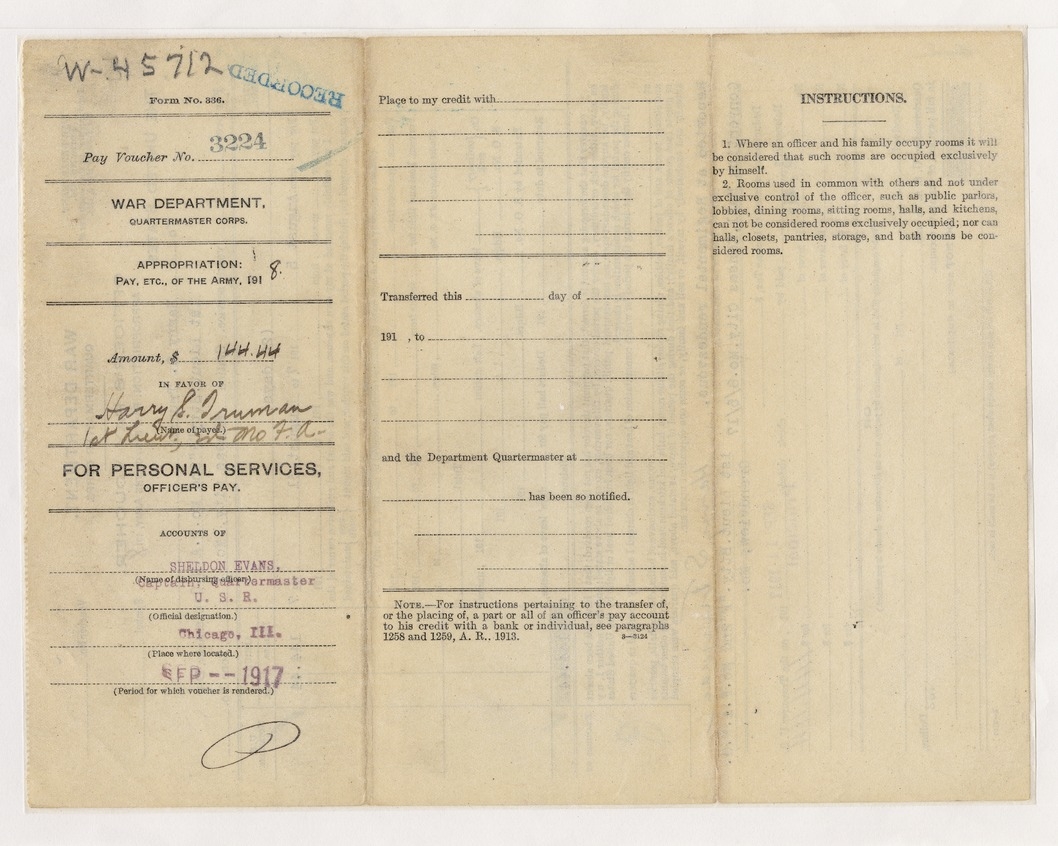 W-45712
RECORDED
Form No. 336.
Pay Voucher No. 3224
WAR DEPARTMENT,
QUARTERMASTER CORPS.
APPROPRIATION:
PAY, ETC., OF THE ARMY, 1918.
Amount, $ 144.44
IN FAVOR OF
Harry S. Truman
(Name of payee.)
1st Lieut, 2d Mo F.A.
FOR PERSONAL SERVICES,
OFFICER'S PAY.
ACCOUNTS OF
SHELDON EVANS,
(Name of disbursing officer.)
Captain, Quartermaster
U. S. R.
(Official designation.)
Chicago, Ill.
(Place where located.)
SEP -- 1917
(Period for which voucher is rendered.)
Place to my credit with
Transferred this day of
191 , to
and the Department Quartermaster at
has been so notified.
NOTE.—For instructions pertaining to the transfer of,
or the placing of, a part or all of an officer's pay account
to his credit with a bank or individual, see paragraphs
1258 and 1259, A. R., 1913.
3—3124
INSTRUCTIONS.
1. Where an officer and his family occupy rooms it will
be considered that such rooms are occupied exclusively
by himself.
2. Rooms used in common with others and not under
exclusive control of the officer, such as public parlors,
lobbies, dining rooms, sitting rooms, halls, and kitchens,
can not be considered rooms exclusively occupied; nor can
halls, closets, pantries, storage, and bath rooms be con-
sidered rooms.